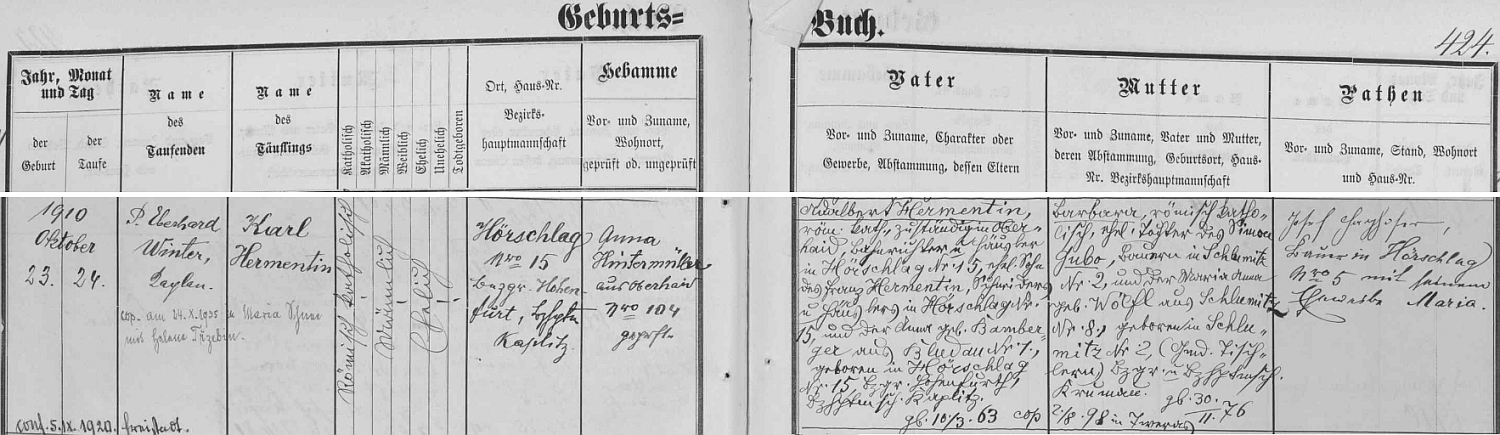 Geburts=
Buch.
424.
Jahr, Monat
und Tag
der
Geburt
der
Taufe
Name
des
Taufenden
Name
des
Täuflings
Katholisch
Akatholisch
Männlich
Weiblich
Ehelich
Unehelich
Todtgeboren
Ort, Haus-Nr.
Bezirks-
hauptmannschaft
Hebamme
Vor- und Zuname,
Wohnort,
geprüft od. ungeprüft
Vater
Vor- und Zuname, Charakter oder
Gewerbe, Abstammung, dessen Eltern
Mutter
Vor- und Zuname, Vater und Mutter,
deren Abstammung, Geburtsort, Haus-
Nr. Bezirkshauptmannschaft
Pathen
Vor- und Zuname, Stand, Wohnort
und Haus-Nr.
1910
Oktober
23. 24.
P. Eberhard
Winter,
Kaplan.
cop. am 24. X. 1935 in Maria Schnee
mit Helene
conf. 5. IX. 1920. Freistadt.
Karl
Hermentin
Römisch katholisch
Männlich
Ehelich
Hörschlag
Nro 15
Bezgr. Hohen-
furt,
Kaplitz.
Anna
Hintermüller
aus Oberhaid
Nro 104
geprft.
Adalbert Hermentin,
röm. kath., zuständig in Ober-
haid, u Häusler
in Hörschlag Nr 15, ehel. Sohn
des Franz Hermentin, Schneiders
u Häuslers in Hörschlag Nr.
15, und der Anna geb. Bamber-
ger aus Bludau Nr 1.,
geboren in Hörschlag
Nr. 15, Bzgr. Hohenfurth,
Bzhptmsch. Kaplitz.
gb. 10/3. 63 cop
Barbara, römisch katho-
lisch, ehel. Tochter des Simon
Gubo, Bauern in Schlumitz
Nr 2, und der Maria Anna
geb. Wölfl aus Schlumitz
Nr 8., geboren in Schlu-
mitz Nr 2, (Gmd. Tisch-
lern) Bzgr. u Bzhptmsch.
Krumau. gb. 30.
II. 76
2/8. 98 in Tweras
Josef
Bauer in Hörschlag
Nro 5 mit seinem
Eheweibe Maria.